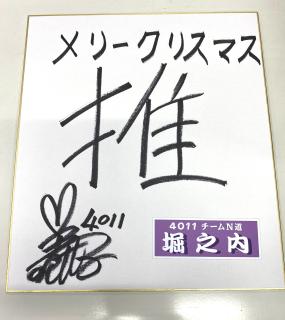 メリークリスマス
推
4011
4011 チームN道
堀之内